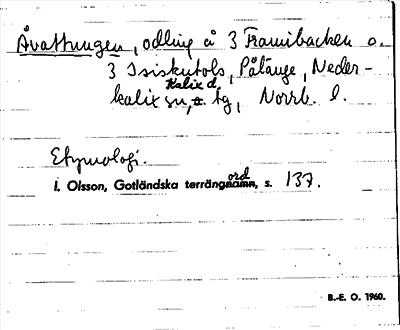 Åvattungen, odling å 3 Framibacken o.
3 Isiskutols, Pålänge, Neder-
Kalix d.
kalix sn, o. tg, Norrb. l.
Etymologi.
ord
I. Olsson, Gotländska terrängnamn, s. 137.
B.-E. O. 1960.